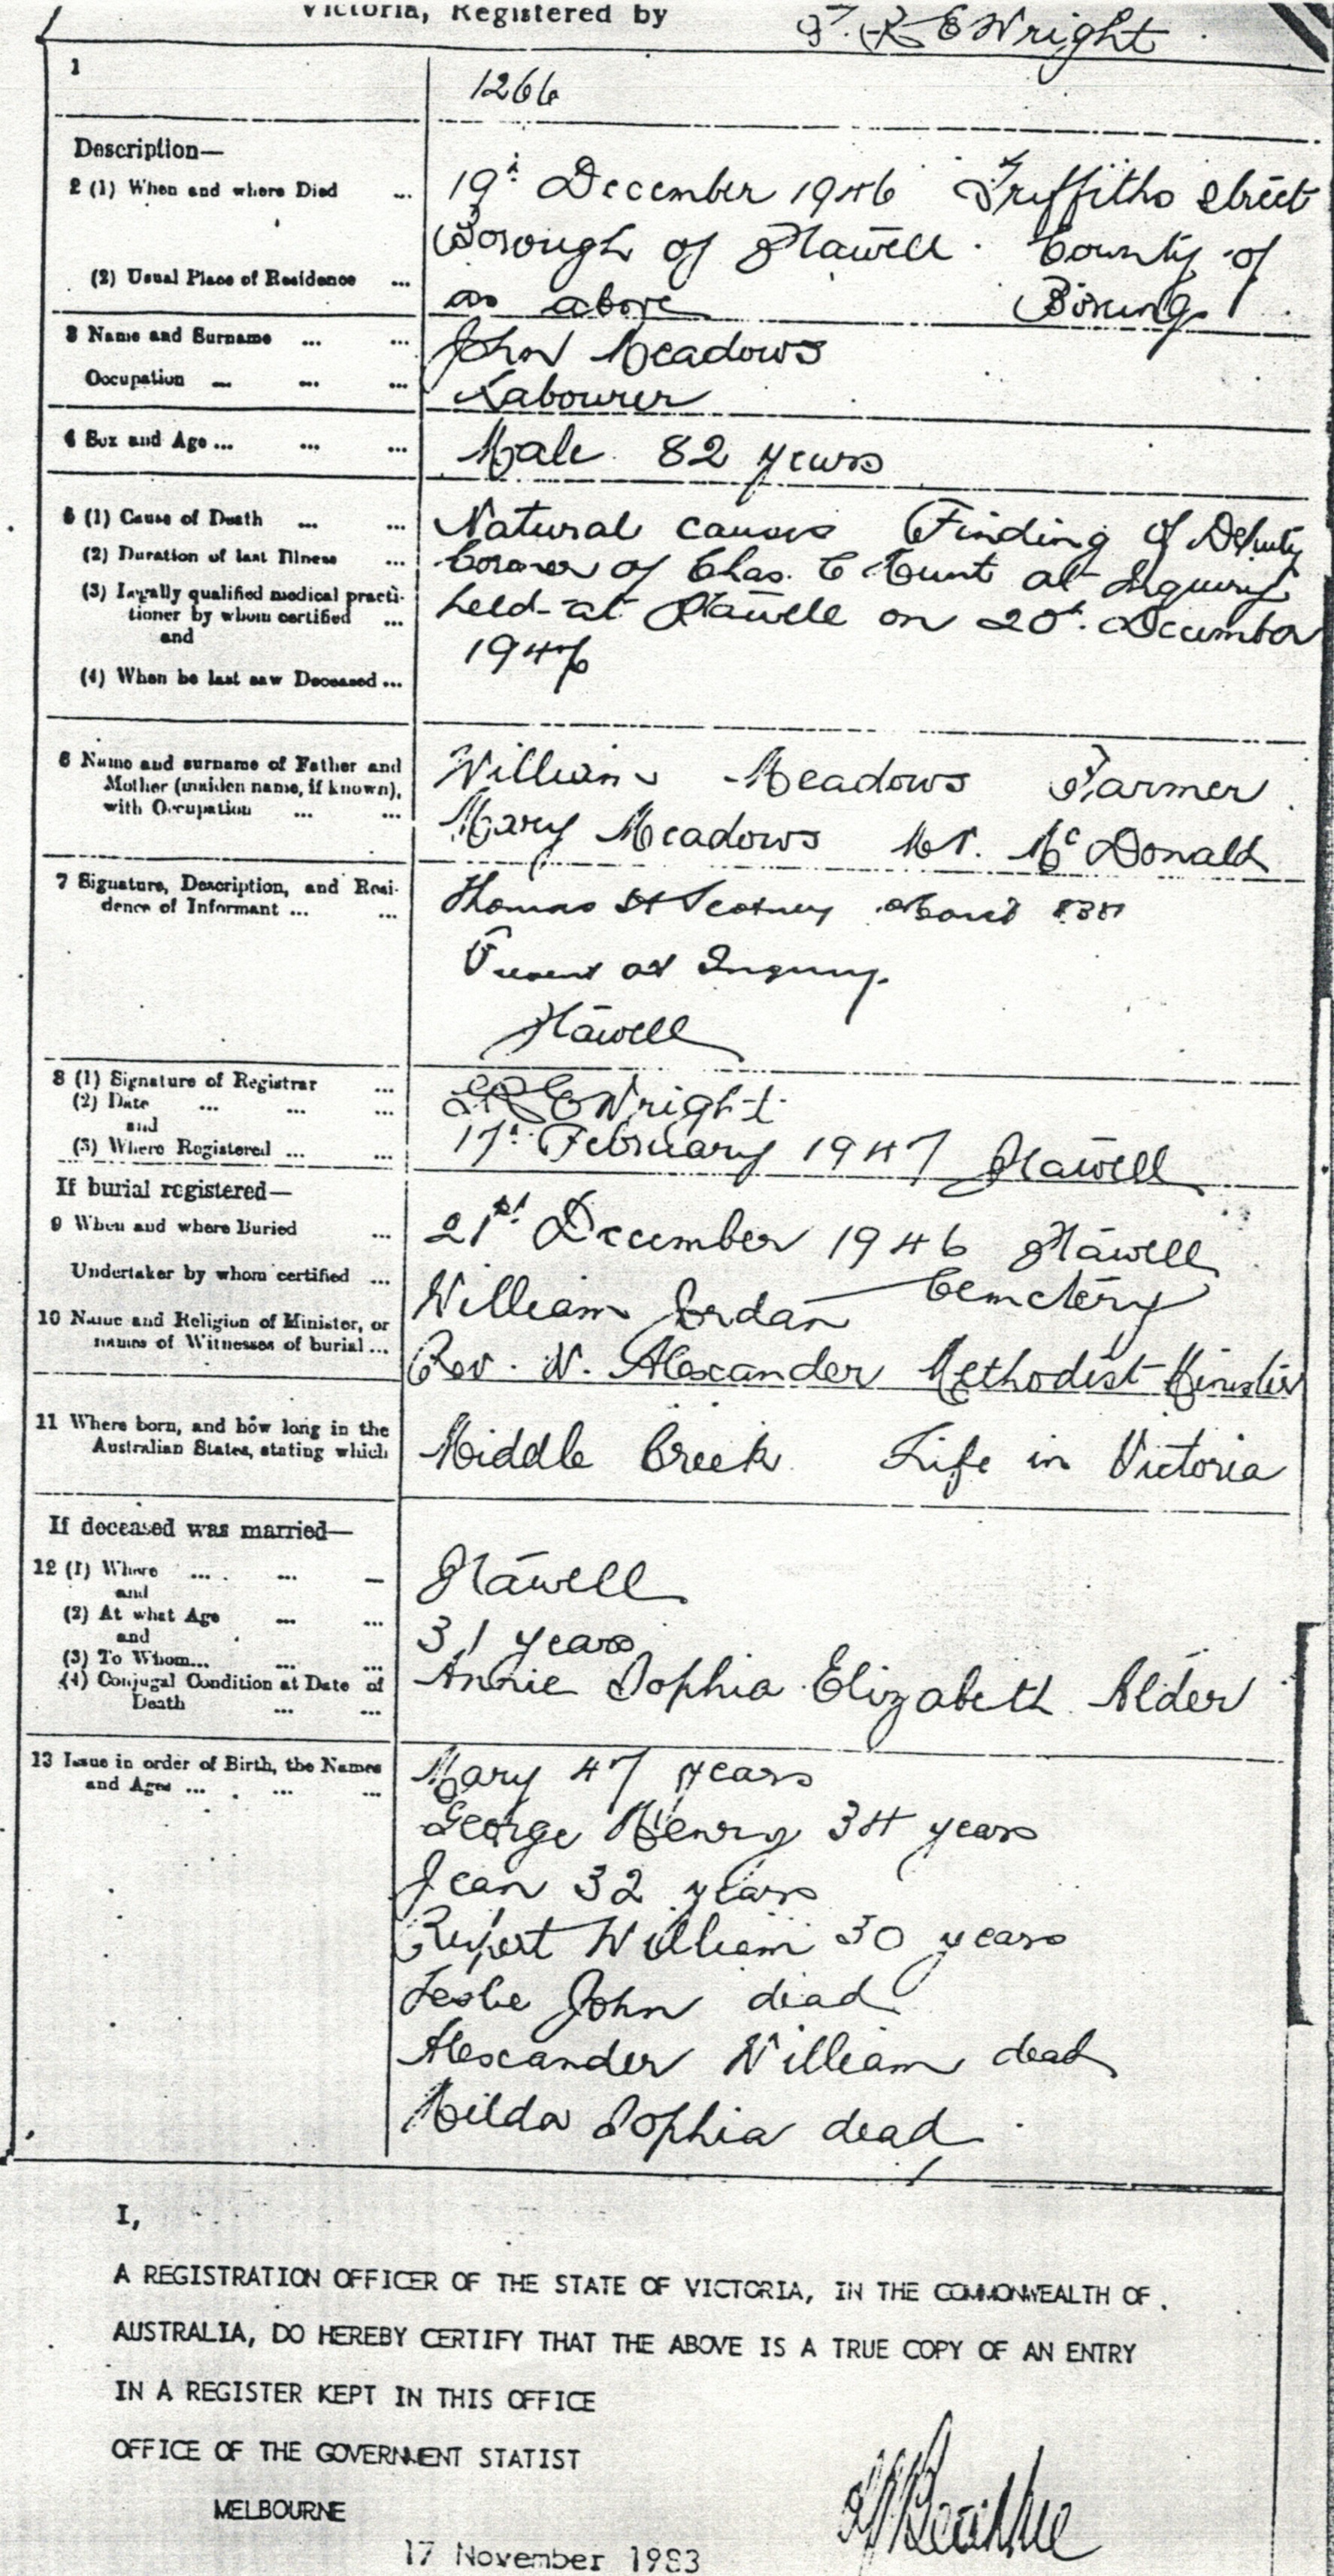 Victoria, Registered by E Wright
1
1266
Description—
2 (1) When and where Died ... 19th December 1946 Griffiths Street
Borough of Stawell. County of
(2) Usual Place of Residence ... as above Borung
3 Name and Surname ... ... John Meadows
Occupation ... ... ... Labourer
4 Sex and Age ... ... ... Male 82 years
5 (1) Cause of Death ... ... Natural causes Finding of Deputy
(2) Duration of last Illness ... Coroner of Chas. C Hunt at Inquiry
(3) Legally qualified medical practi- held at Stawell on 20th December
tioner by whom certified ... 1946
and
(4) When he last saw Deceased ...
6 Name and surname of Father and William Meadows Farmer
Mother (maiden name, if known),
with Occupation ... ... Mary Meadows M.N. McDonald
7 Signature, Description, and Resi- Thomas
dence of Informant ... ...
Present at Inquiry
Stawell
8 (1) Signature of Registrar ... E Wright
(2) Date ... ... ...
and
(3) Where Registered ... ... 17th February 1947 Stawell
If burial registered—
9 When and where Buried ... 21st December 1946 Stawell
Cemetery
Undertaker by whom certified ... William Jordan
10 Name and Religion of Minister, or
names of Witnesses of burial ... Rev. N. Alexander Methodist Minister
11 Where born, and how long in the
Australian States, stating which Middle Creek Life in Victoria
If deceased was married—
12 (1) Where ... ... — Stawell
and
(2) At what Age ... ... 31 years
and
(3) To Whom... ... ... Annie Sophia Elizabeth Alder
(4) Conjugal Condition at Date of
Death ... ...
13 Issue in order of Birth, the Names Mary 47 years
and Ages ... ... ...
George Henry 34 years
Jean 32 years
Rupert William 30 years
Leslie John dead
Alexander William dead
Hilda Sophia dead
I,
A REGISTRATION OFFICER OF THE STATE OF VICTORIA, IN THE COMMONWEALTH OF
AUSTRALIA, DO HEREBY CERTIFY THAT THE ABOVE IS A TRUE COPY OF AN ENTRY
IN A REGISTER KEPT IN THIS OFFICE
OFFICE OF THE GOVERNMENT STATIST
MELBOURNE
17 November 1983